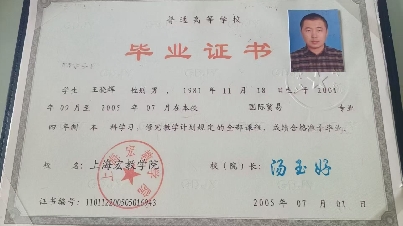 普通高等学校
毕业证书
学生 王晓辉 性别 男，1981年11月18日生，于2001
年09月至2005年07月在本校 国际贸易 专业
四年制 本 科学习，修完教学计划规定的全部课程，成绩合格准予毕业。
校 名：上海宏教学院 校（院）长：汤玉好
证书编号：110112200505016943 2005年07月01日